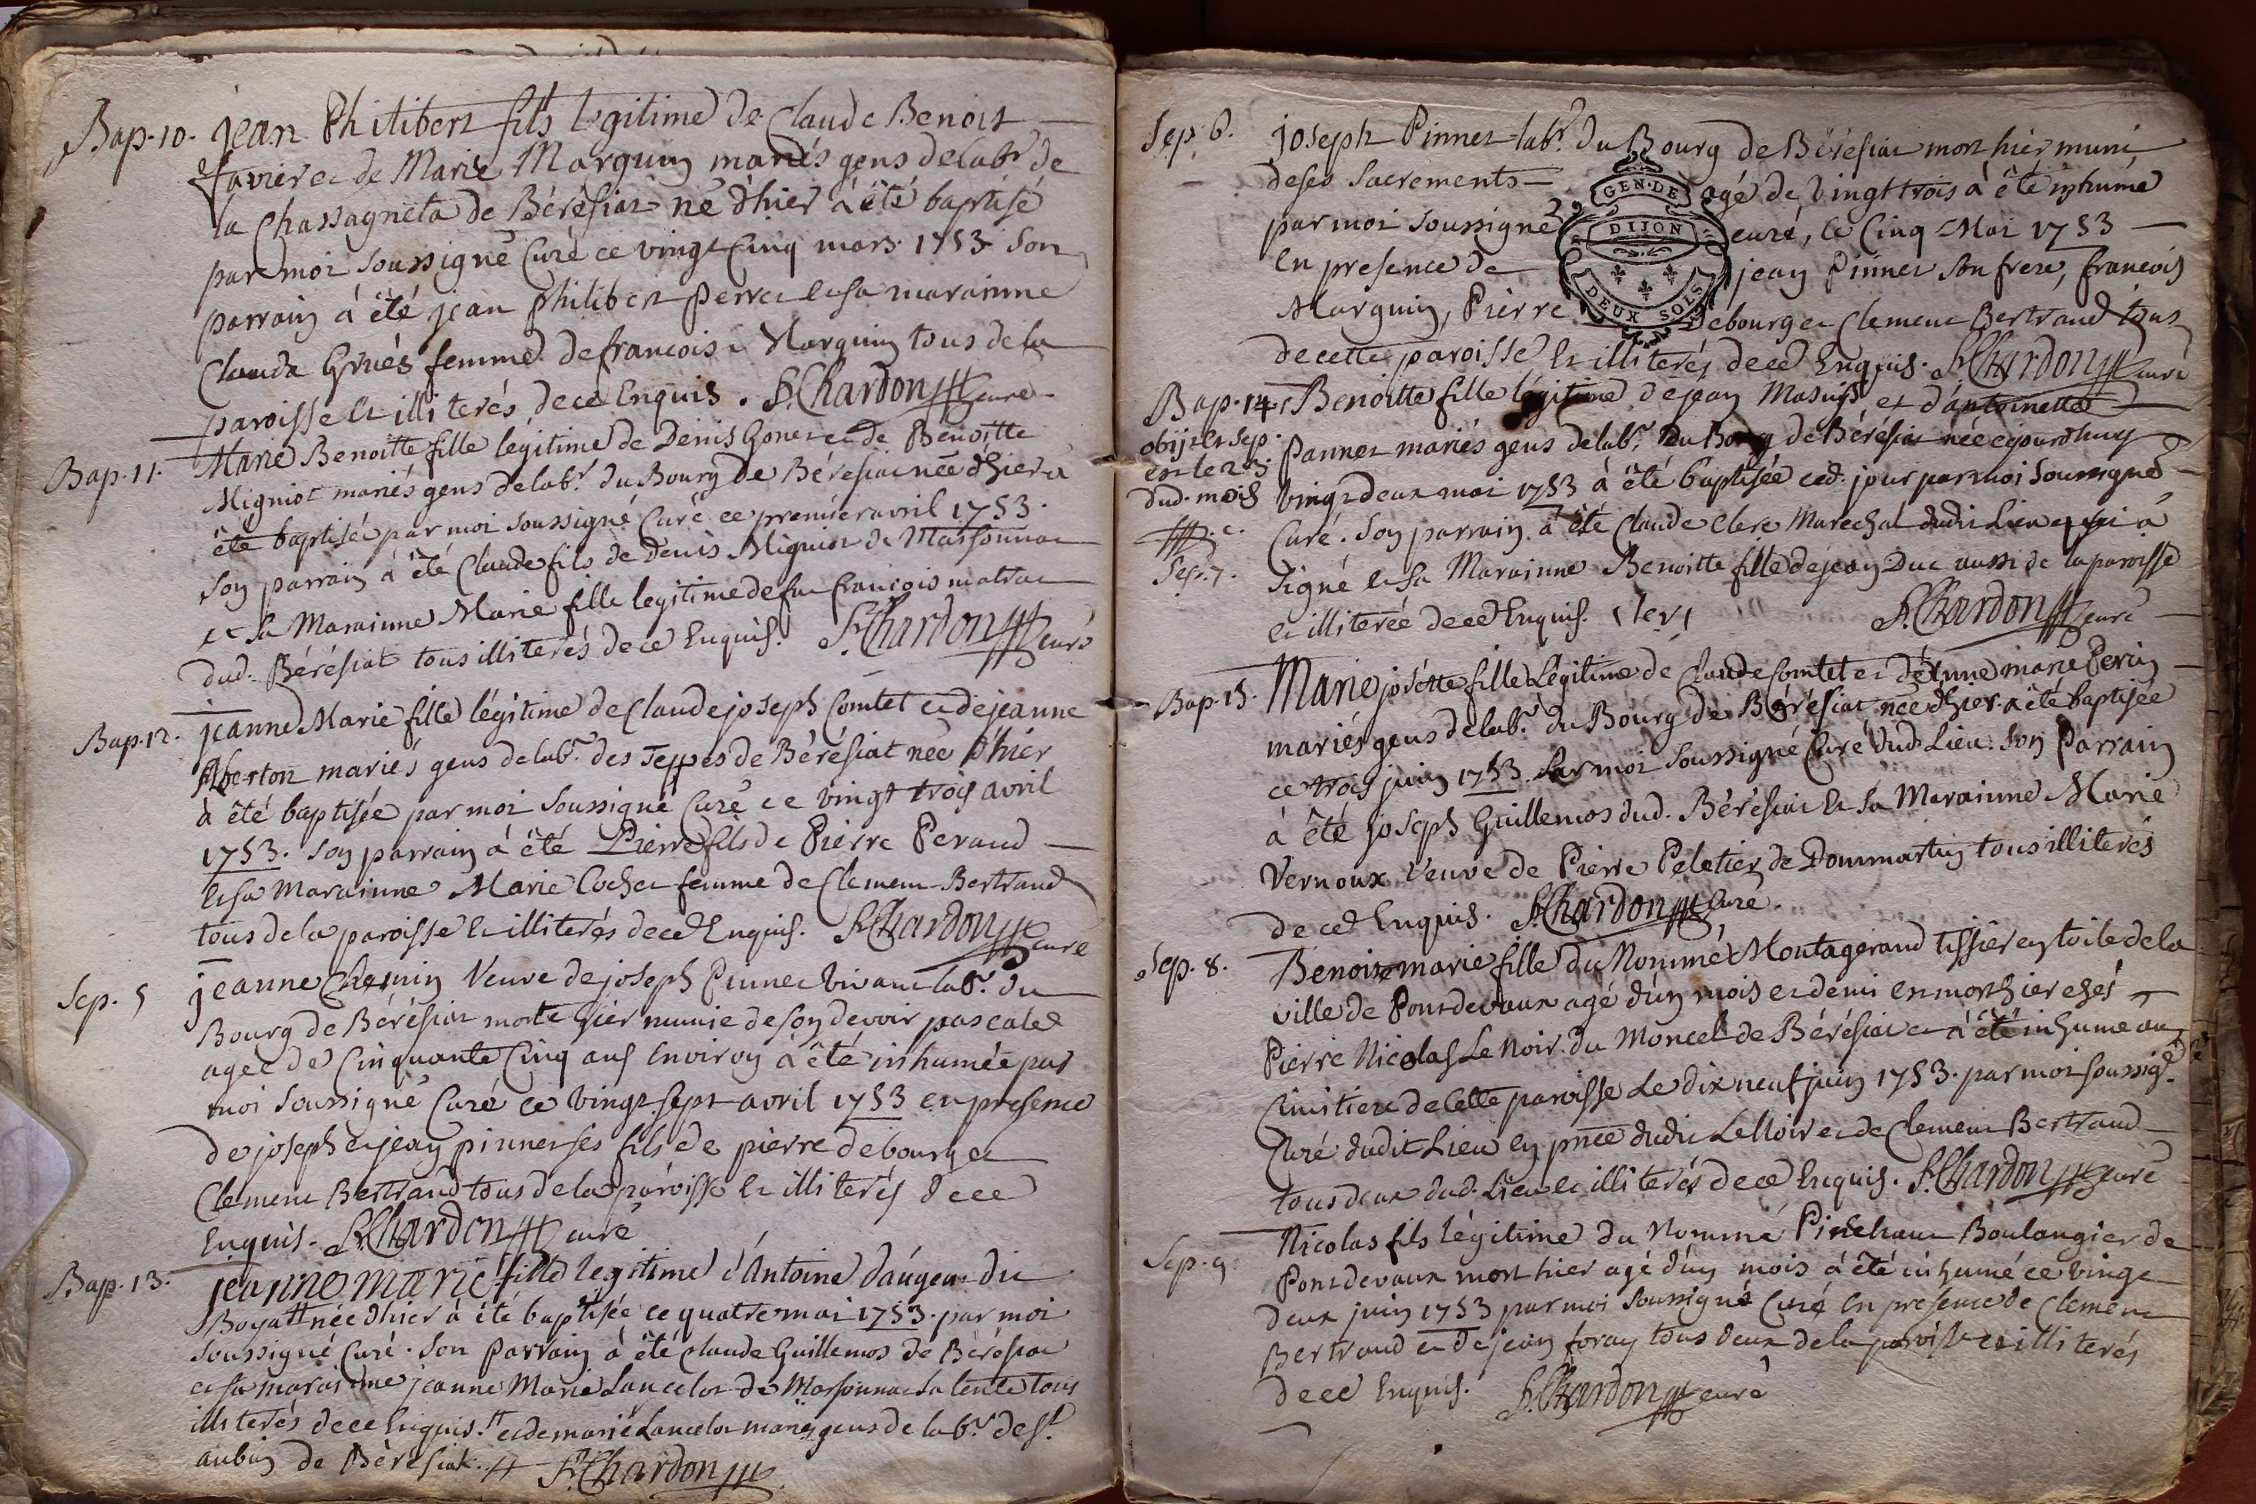 Bap. 10. jean Philibert fils legitime de Claude Benoit
favier et de Marie Marguin mariés gens de labr. de
la Chassagneta de Béréßiat né d'hier à été baptisé
par moi soussigné Curé ce vingt Cinq mars 1753 Son
parrain à été jean Philibert perret et sa marainne
Clauda Gruès femme de francois Marguin tous de la
paroisse et illiterés de ce Enquis. F. Chardon curé
Bap. 11. Marie Benoitte fille légitime de Denis Gonet et de Benoitte
Migniot mariés gens de labr. du Bourg de Béresiat née d'hier à
été baptisée par moi soussigné Curé ce premier avril 1753.
Son parrain à été Claude fils de Denis Migniot de Massonnas
et sa Marainne Marie fille legitime de feu francois
dud. Bérésiat tous illiterés de ce Enquis. F. Chardon curé
Bap. 12. jeanne Marie fille légitime de Claude joseph Comtet et de jeanne
Aberton mariés gens de labr. des Teppes de Bérésiat née d'hier
à été baptisée par moi soussigné Curé ce vingt trois avril
1753. Son parrain à été Pierre fils de Pierre Peraud
et sa Marainne Marie Cochet femme de Clement Bertrand
tous de la paroisse et illiterés de ce Enquis. F. Chardon curé
Sep. 5 jeanne Chemin Veuve de joseph Pinnet vivant labr. du
Bourg de Bérésiat morte hier munie de son devoir pascale
agée de Cinquante Cinq ans Environ à été inhumée par
moi soussigné Curé ce vingt sept avril 1753 en presence
de joseph et jean pinnet ses fils de pierre debourg et
Clement Bertrand tous de la paroisse et illiterés de ce
Enquis. F. Chardon curé
Bap. 13. jeanne marie fille legitime d'Antoine daugeu dit
Boyat # née d'hier à été baptisée ce quatre mai 1753. par moi
soussigné Curé. Son Parrain à été Claude Guillemos de Bérésiat
et sa marainne jeanne Marie Lancelot de Massonnas sa tente tous
illiterés de ce Enquis. # et de marie Lancelot mariés gens de labr. de St.
aubin de Bérésiat. # F. Chardon
Sep. 6. joseph Pinnet labr. du Bourg de Bérésiat mort hier muni
de ses Sacrements agé de vingt trois à été inhumé
par moi soussigné curé, le Cinq Mai 1753
en presence de jean Pinnet son frere, francois
Marguin, Pierre debourg et Clement Bertrand tous
de cette paroisse et illiterés de ce Enquis. F. Chardon curé
GEN. DE
DIJON
DEUX SOLS
Bap. 14. Benoitte fille légitime de jean Masuis et d'antoinette
obijt et sep. Pannet mariés gens de labr. du Bourg de Bérésiat née cejourdhuy
est le 23. vingt deux mai 1753 à été baptisée ced. jour par moi soussigné
dud. mois
Curé. Son parrain à été Claude Clere Marechal dudit Lieu qui à
Sep. 7. signé et sa Marainne Benoitte fille de jean Duc aussi de la paroisse
et illiterée de ce Enquis. F. Chardon curé
Bap. 15. Marie josette fille Légitime de Claude Comtet et d'étinne marie Perin
mariés gens de labr. du Bourg de Bérésiat née d'hier à été baptisée
ce trois juin 1753. par moi soussigné Curé dud. Lieu. Son Parrain
à été joseph Guillemos dud. Bérésiat et sa Marainne Marie
Vernoux Veuve de Pierre Peletier de Dommartin tous illiterés
de ce Enquis. F. Chardon Curé.
Sep. 8. Benoite marie fille du Nommé Montagerand tissier en toile de la
ville de Pontdevaux agé d'un mois et demi est mort hier chés
Pierre Nicolas Le Noir du Moncel de Bérésiat et à été inhumé au
Cimitiere de Cette paroisse Le dix neuf juin 1753. par moi soussigé.
Curé dudit Lieu en pnce dudit LeNoir et de Clement Bertrand
tous deux dud. Lieu et illiterés de ce Enquis. F. Chardon curé
Sep. 9. Nicolas fils légitime du Nommé Pinchaut Boulangier de
Pontdevaux mort hier agé d'un mois à été inhumé ce vingt
deux juin 1753 par moi soussigné Curé en presence de Clement
Bertrand et de jean foray tous deux de la paroisse et illiterés
de ce Enquis. F. Chardon curé